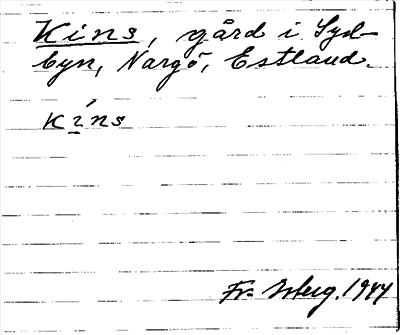 Kins, gård i Syd-
byn, Nargö, Estland.
Kíns
Fr.